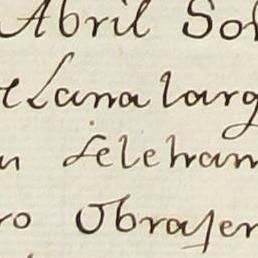 Abril Sob
e Lana larg
n seletram
ro Obrajer